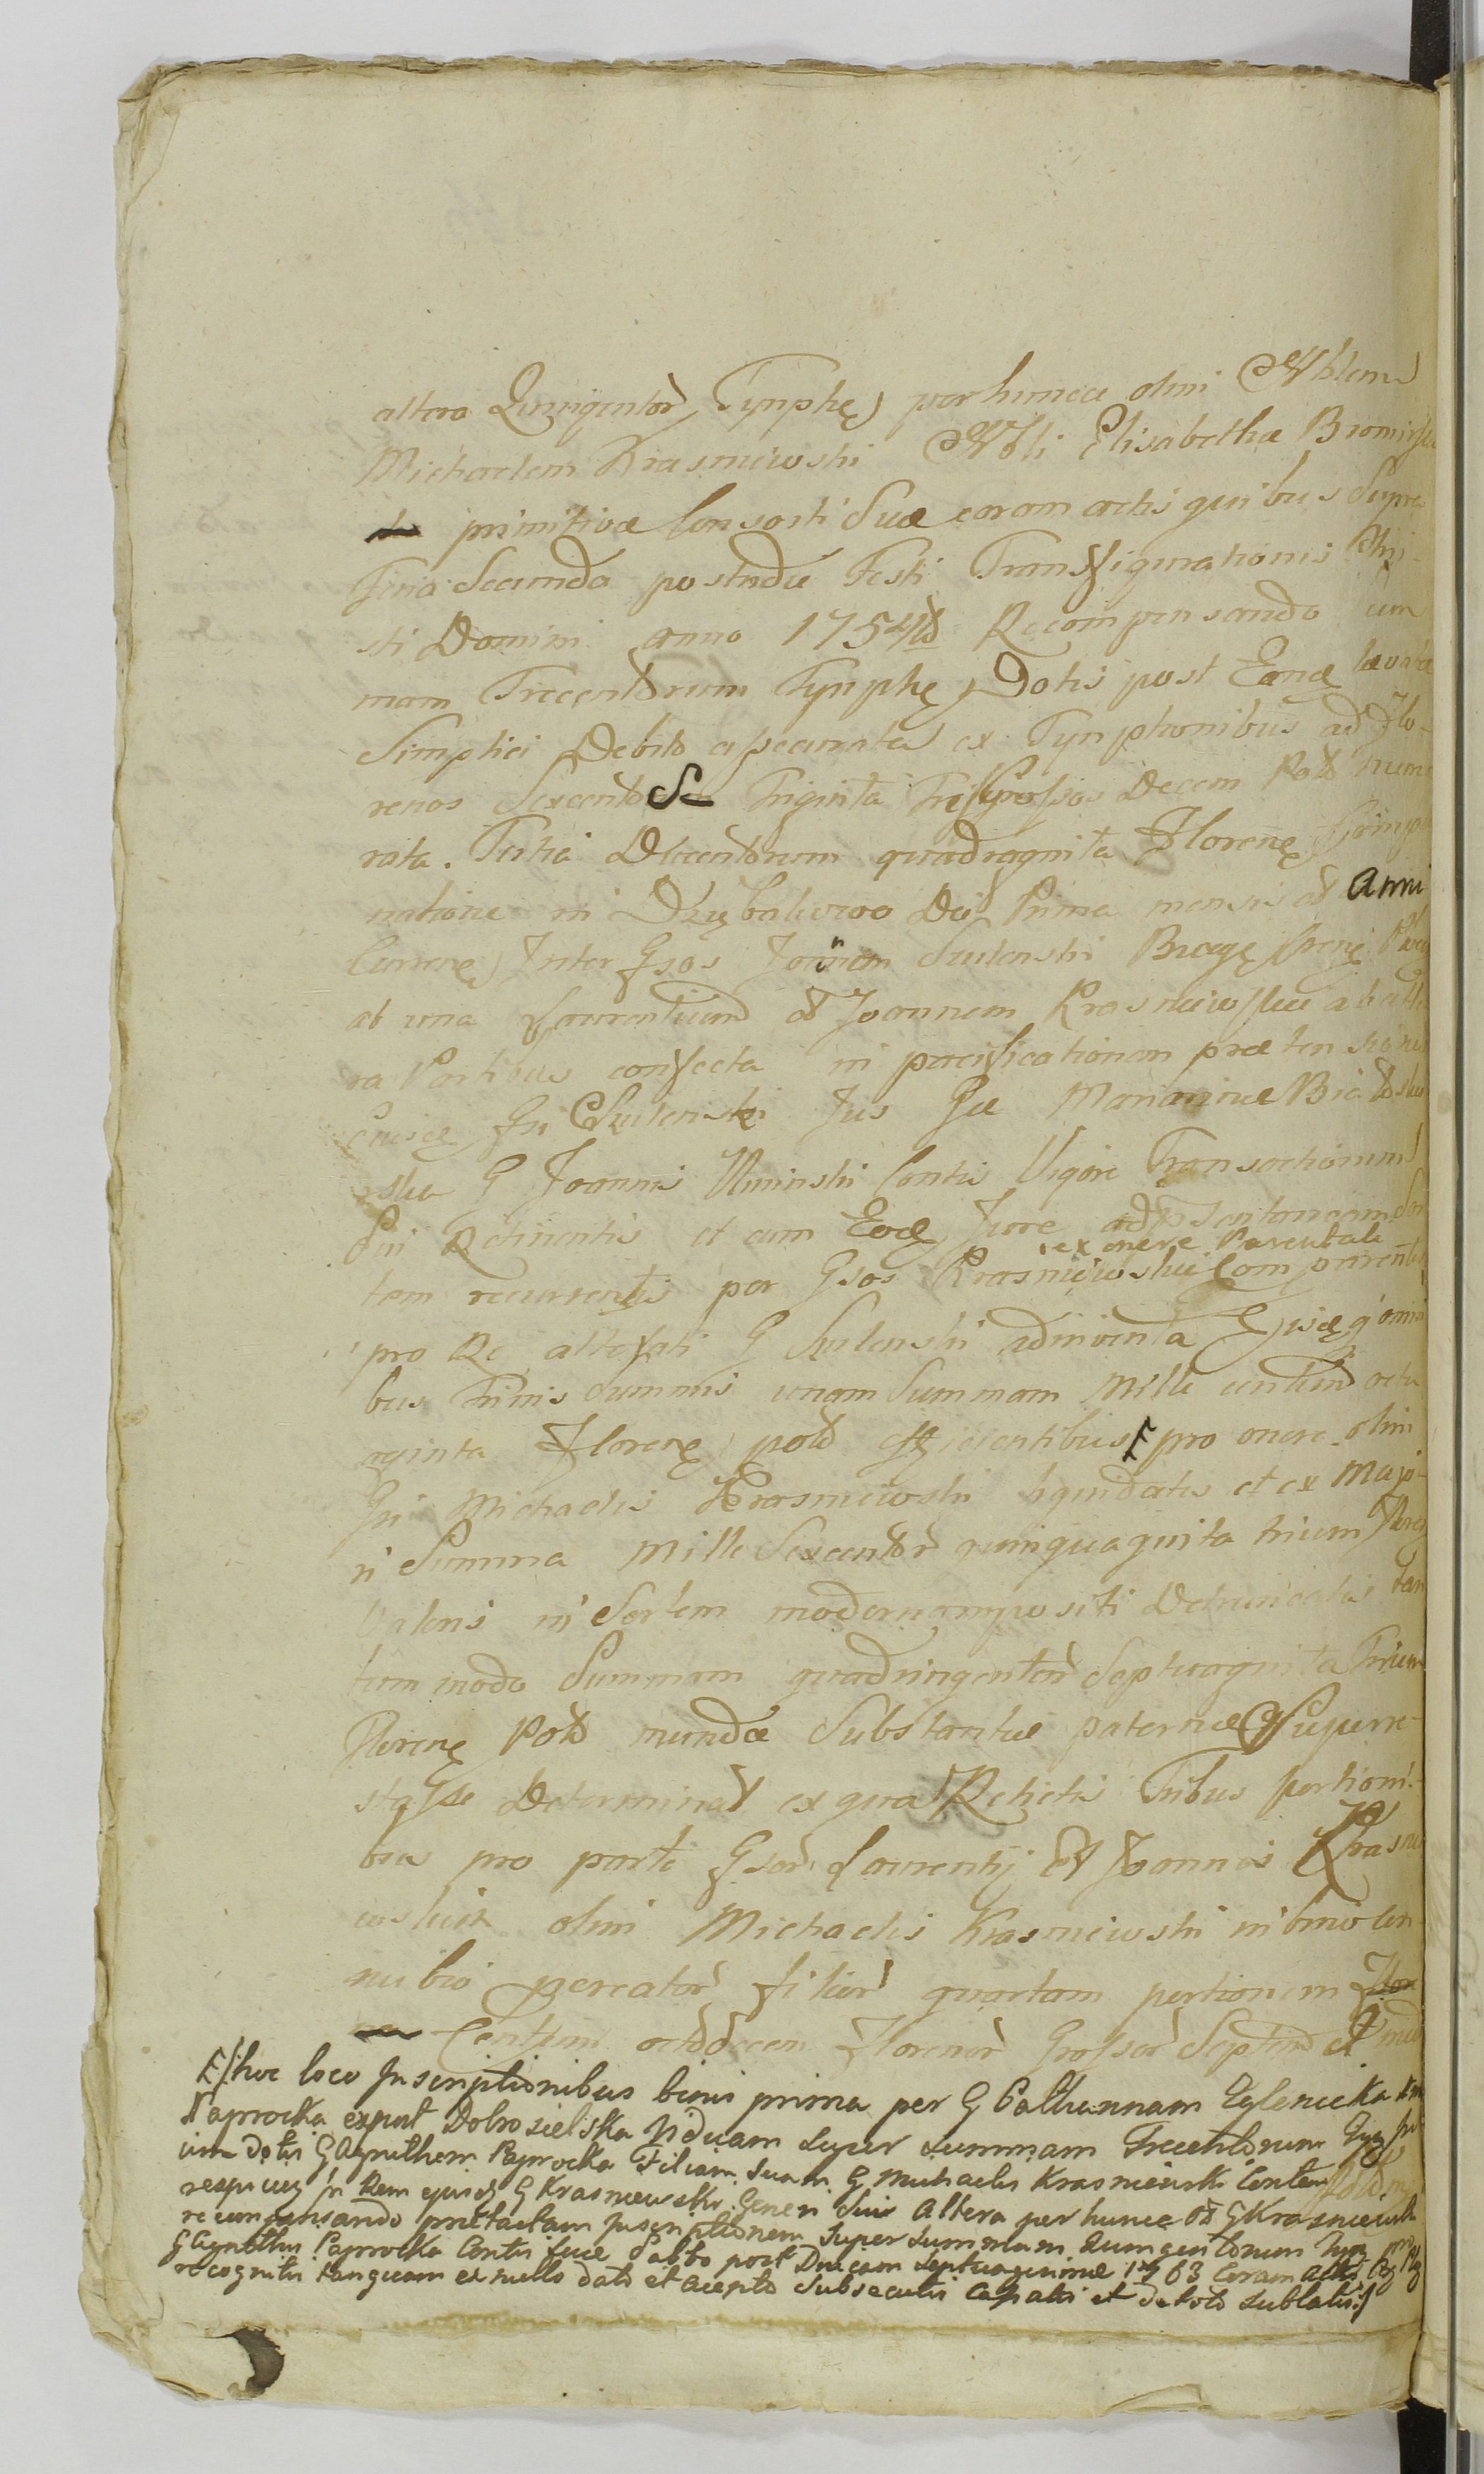 altera Quingentor Tynphę per hunce olim
Michaelem Krasniewski Elisabethæ Bromirska
primitivæ Consorti Suæ coram actis quibus Supra
Feria Secunda postridie Festi Transfigurationis Chri-
sti Domini anno 1754to Recompensando Sum
mam Trecentorum Tynphę Dotis post Eandę levatæ
Simplici Debito ex Tynphonibus ad Flo-
renos Sexcentos Triginta Tres Grossos Decem Pold nume
rata. Tertia Ducentorum quadraginta Florenę Compla
natione in Dziębakowo Die Prima mensis et Anni
Currenę Inter Gsos Joannem Sulenski
ab una Laurentium et Joannem Krasniewskie ab alte
ra Partibus confecta in pacificationem prætensionis
ejusdę Gsi Sulenski Jus Gæ Mariannæ
G Joannis Uminski Contis Vigore Transactionum
Sui Retinentis et cum Eodę Jure ad
ex onere Parentali
tem recurrentis per Gsos Krasniewskie Comparentes
pro Re attefati G Sulenski adinventa Ejusdę omni
bus trinis summis unam Summam Mille centum octu
aginta Florenę pold efficientibus F pro onere olim
Gsi Michaelis Krasniewski liquidatis et ex Majo-
ri Summa Mille Sexcentor quinquaginta trium Florenę
Valoris in Sortem Detruncatis tan
tum modo Summam quadringentor Septuaginta Trium
Florenę Pold mundæ Substantiæ paternæ Superre-
stasse Determinat ex qua Relictis Tribus portioni-
bus pro parte Gsor Laurentij et Joannis Krasni
ewskich olim Michaelis Krasniewski in bino Con-
nubio percator filior quartam portionem Flor
Centum octodecem Florenor Grossor Septem et
F/ hoc loco Inscriptionibus binis prima per G Catharinam Eglenicka
Paprocka expost Dobrosielska Viduam super summam Trecentorum Tyn
dotis G Agnethem Paprocka Filiam suam G Michaelis Krasniewski Contem
respiceę in Rem ejusdę G Krasniewski Generi sui Altera per hunce olim G Krasniewski
recompensando prætactam Inscriptionem super summam Quingentorum Tyn
G Agnethæ Paprocka Contis suæ Sabbo post Dnicam Septuagesimæ 1763 Coram actis
recognitis tanquam ex nullo dato et accepto subsecutis Cassatis et de toto sublatis:/